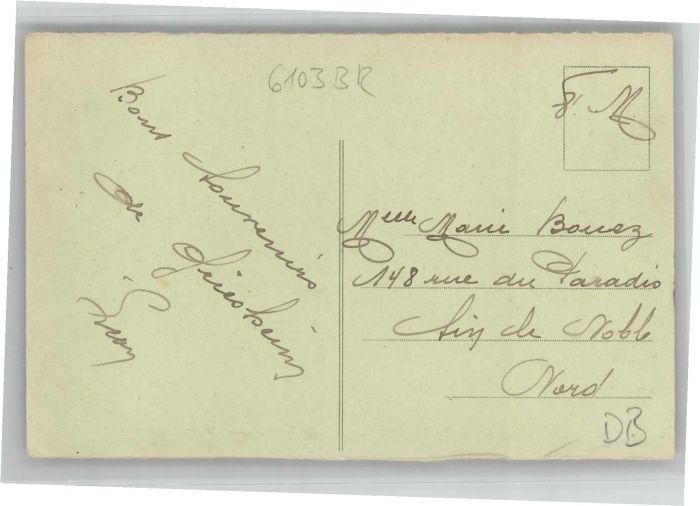 6103BR
F. M.
Bons
souvenirs
de
Griesheim
Melle Marie Bouez
148 rue du Paradis
Sin le Noble
Nord
DB